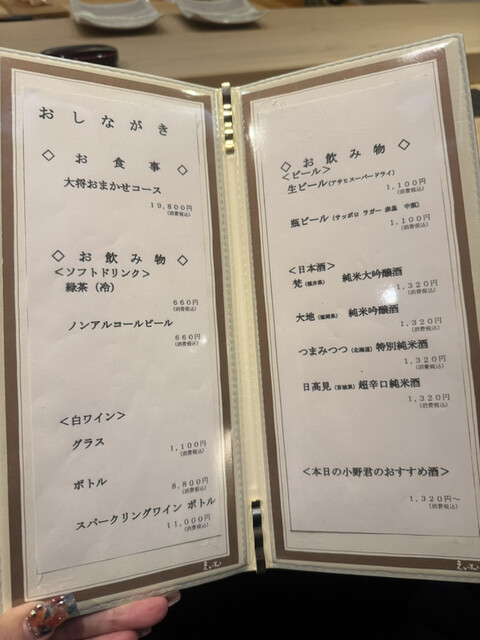 おしながき
◇ お食事 ◇
大将おまかせコース
19,800円
(消費税込)
◇ お飲み物 ◇
<ソフトドリンク>
緑茶(冷)
660円
(消費税込)
ノンアルコールビール
660円
(消費税込)
<白ワイン>
グラス
1,100円
(消費税込)
ボトル
8,800円
(消費税込)
スパークリングワイン ボトル
11,000円
(消費税込)
◇ お飲み物 ◇
<ビール>
生ビール(アサヒスーパードライ)
1,100円
(消費税込)
瓶ビール(サッポロ ラガー 赤星 中瓶)
1,100円
(消費税込)
<日本酒>
梵(福井県) 純米大吟醸酒
1,320円
(消費税込)
大地(福岡県) 純米吟醸酒
1,320円
(消費税込)
つまみつつ(北海道) 特別純米酒
1,320円
(消費税込)
日高見(宮城県) 超辛口純米酒
1,320円
(消費税込)
<本日の小野君のおすすめ酒>
1,320円~
(消費税込)